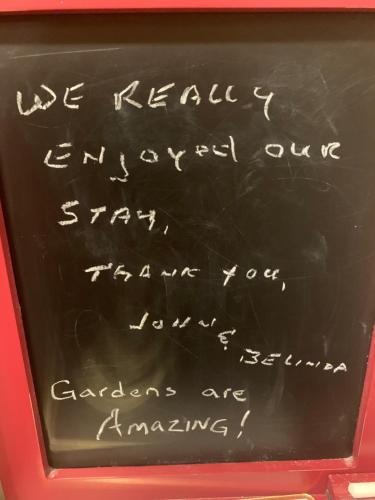 WE REALLY
ENJOYED OUR
STAY,
THANK YOU,
JOHN &
BELINDA
Gardens are
AMAZING!